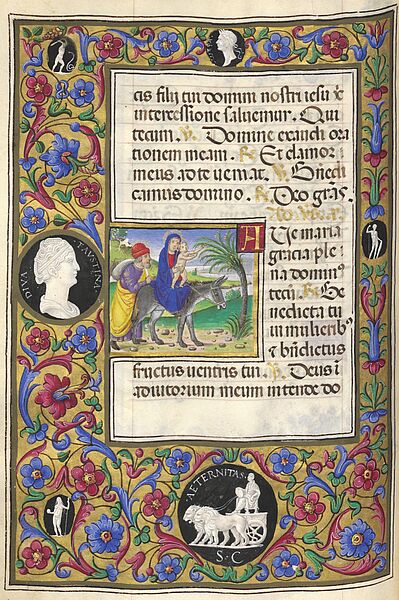 cis filij tui domini nostri iesu xp̄e
intercessione saluemur. Qui
tecum. ℣. Domine exaudi ora
tionem meam. ℟. Et clamor
meus ad te ueniat. ℣. Bn̄edi
camus domino. ℟. Deo gr̄as.
AVe maria
gracia ple
na domin⁹
tecū. ℟. Be
nedicta tu
in mulierib⁹
& bn̄dictus
fructus uentris tui. ℣. Deus ī
adiutorium meum intende do
DIVA FAVSTINA
AETERNITAS
S C